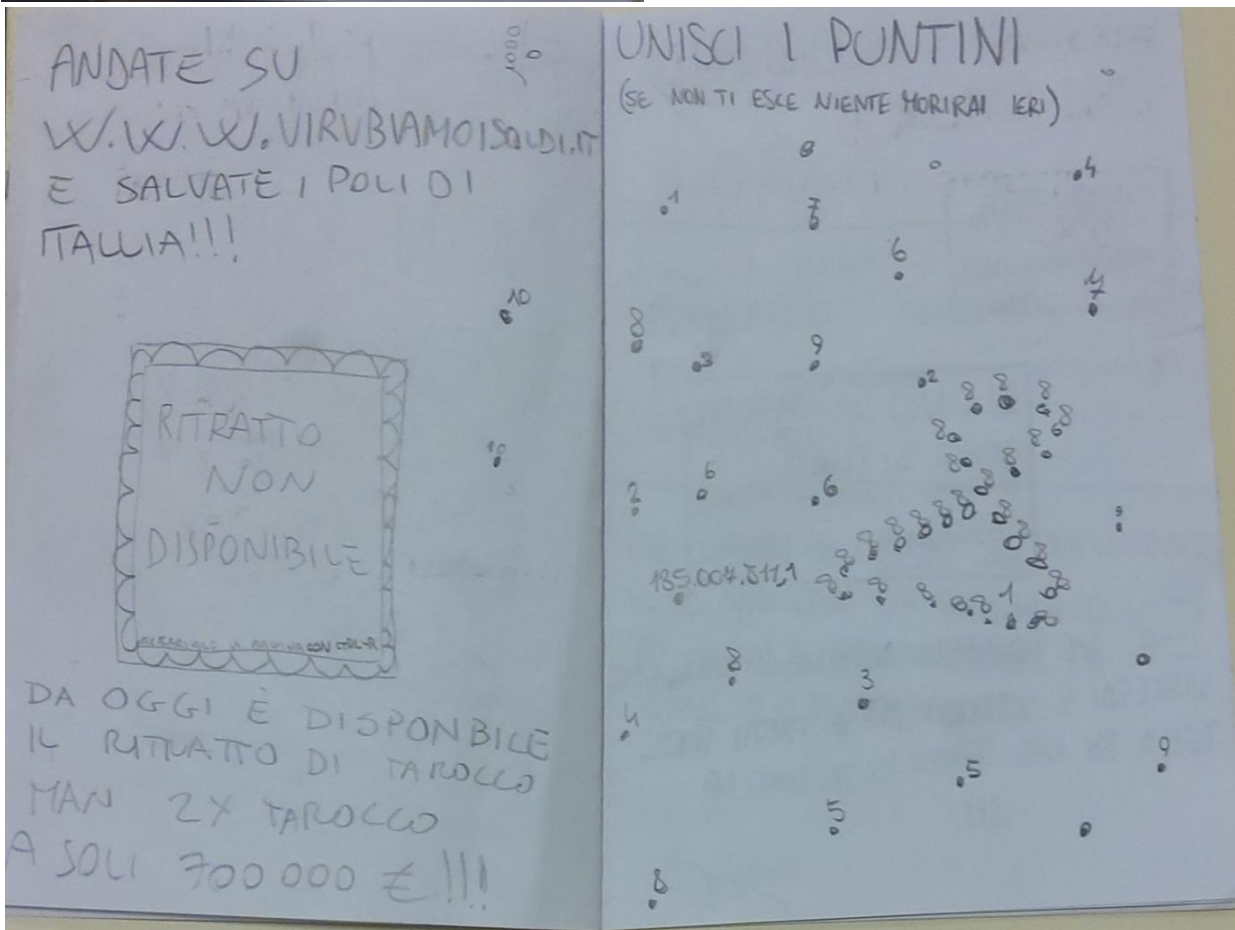 ANDATE SU
W.W.W.VIRUBIAMOISOLDI.IT
E SALVATE I POLI DI
ITALLIA!!!
1000
10
10
RITRATTO
NON
DISPONIBILE
DA OGGI È DISPONBILE
IL RITRATTO DI TAROCCO
MAN 2X TAROCCO
A SOLI 700 000 €!!!
UNISCI I PUNTINI
(SE NON TI ESCE NIENTE MORIRAI IERI)
1
7
4
6
8
3
9
2
8 8 8
8 8
8 8
8 8
2
6
6
8 8 8 8 8 8 8
8 8
8 8 8 8 1 8
8
3
4
5
5
9
8